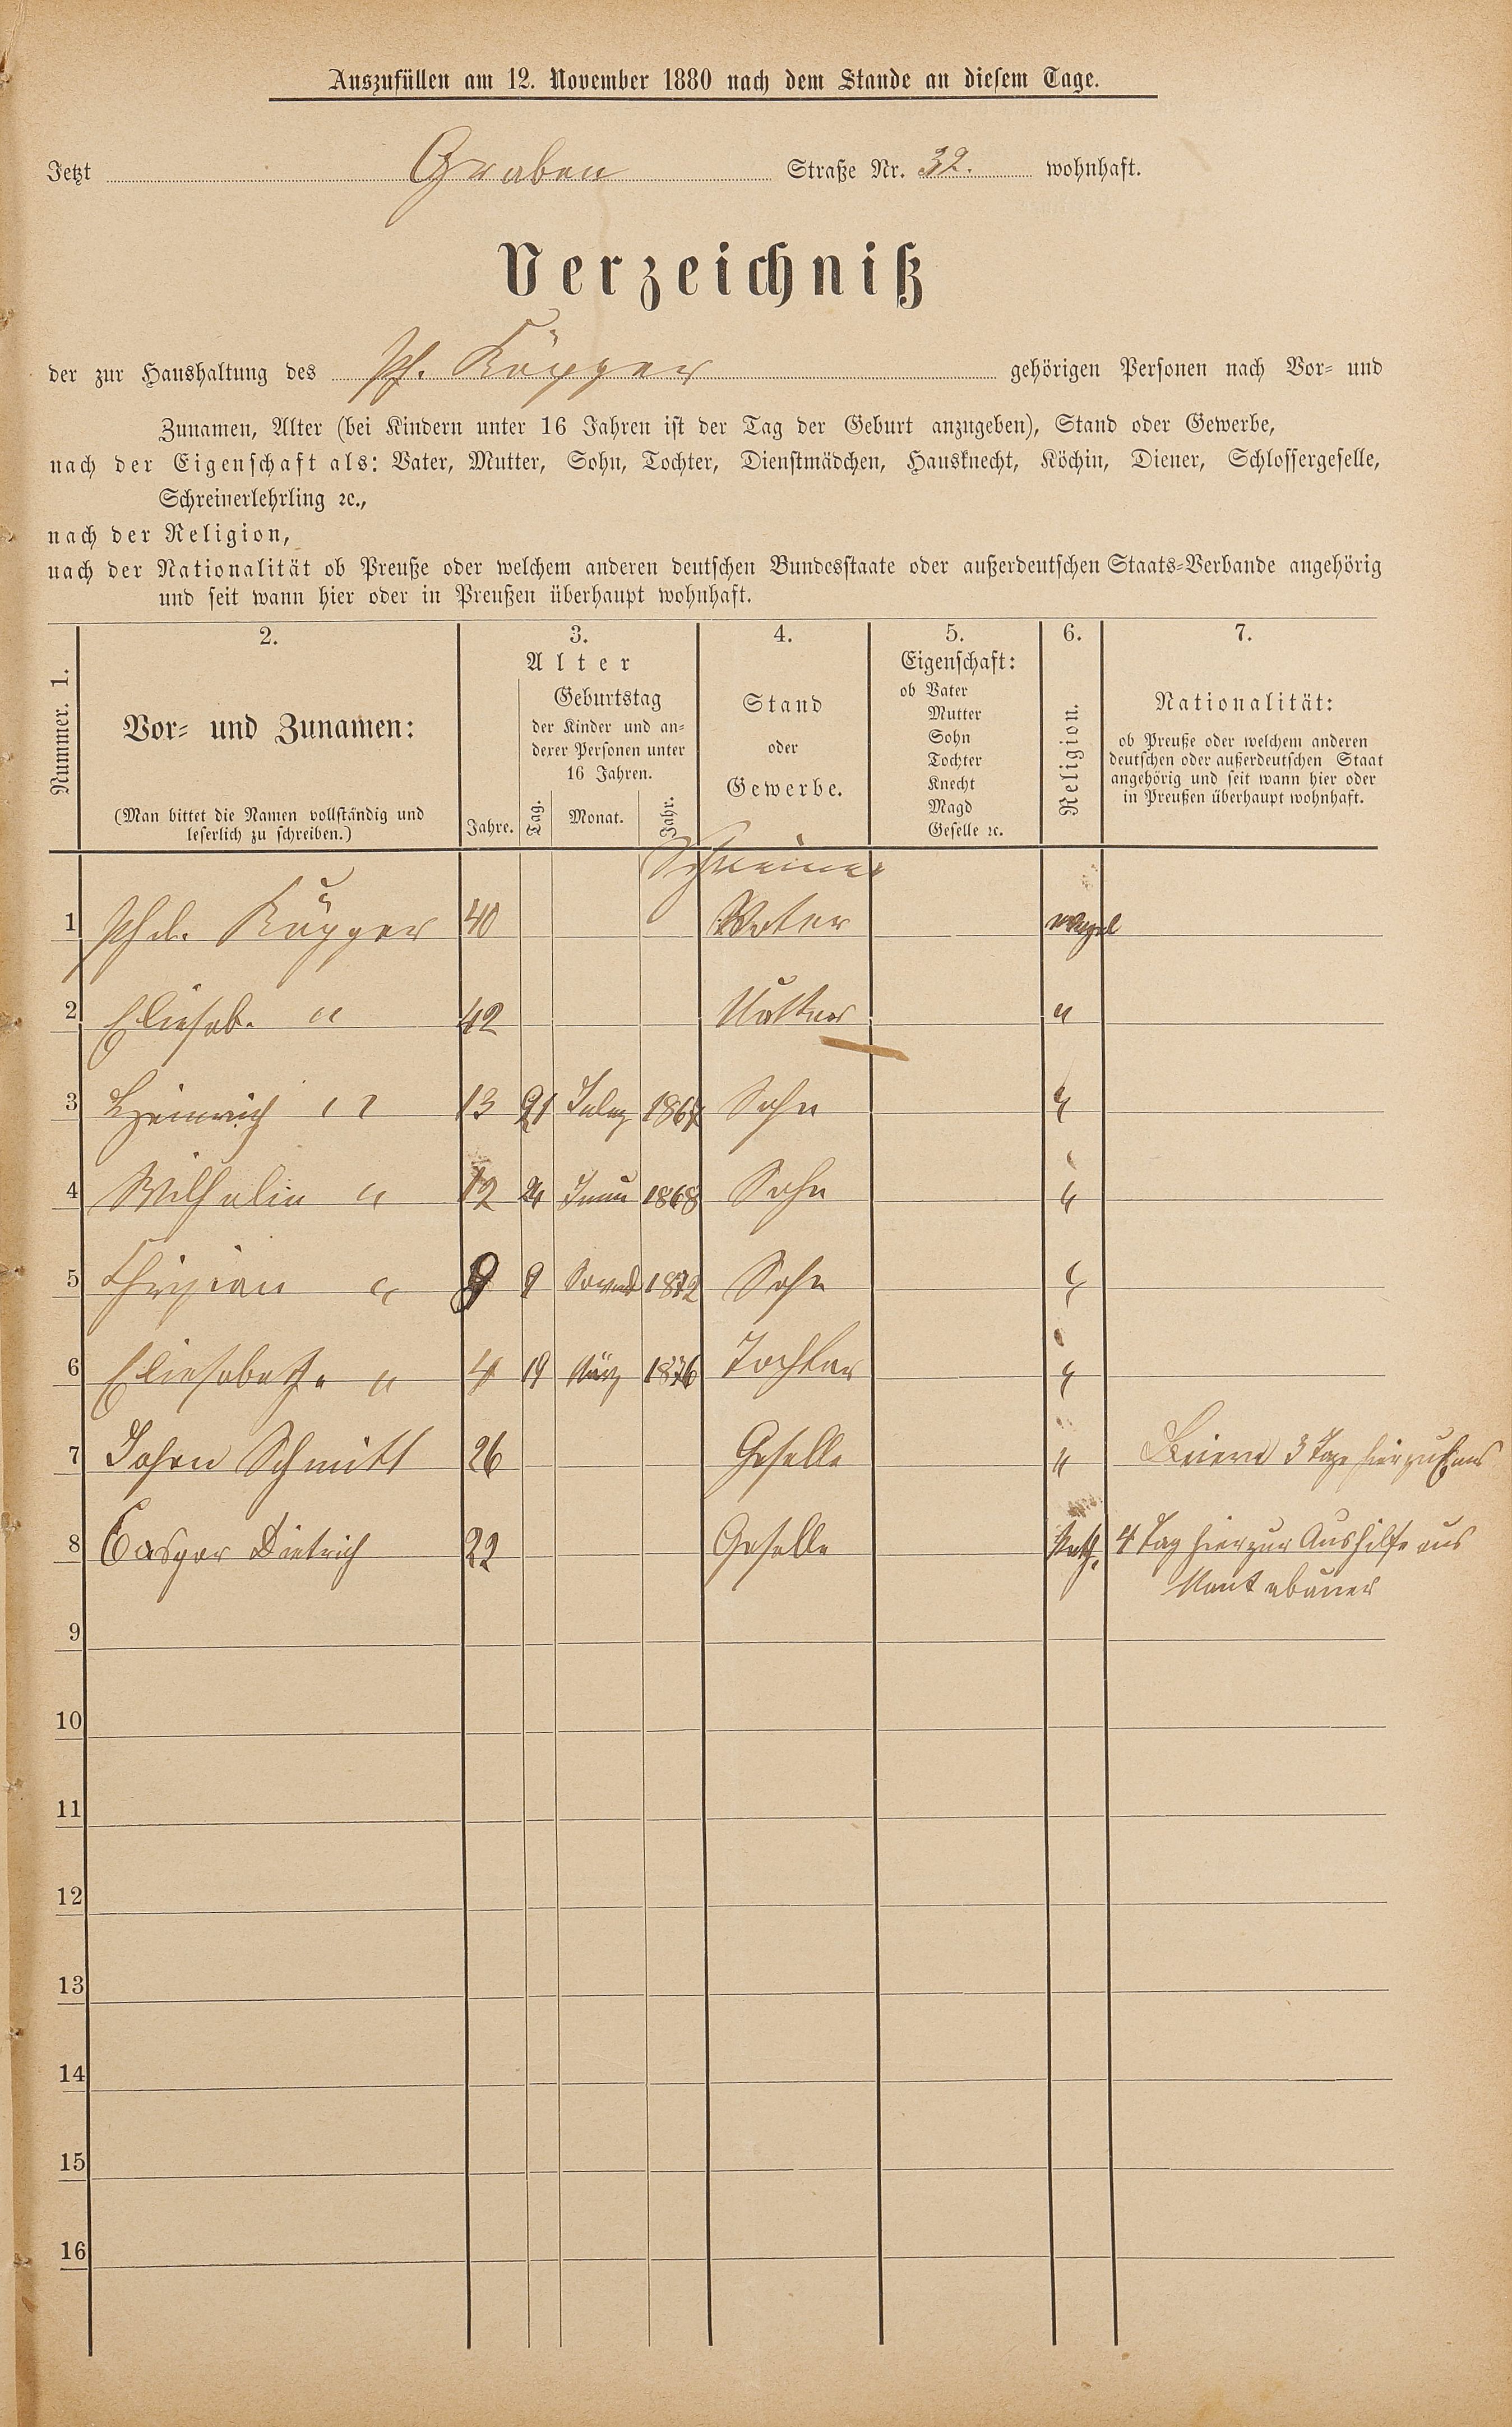 Auszufüllen am 12. November 1880 nach dem Stande an diesem Tage.
Jetzt Graben Straße Nr. 32. wohnhaft.
Verzeichniß
der zur Haushaltung des Ph. Küpper gehörigen Personen nach Vor- und
Zunamen, Alter (bei Kindern unter 16 Jahren ist der Tag der Geburt anzugeben), Stand oder Gewerbe,
nach der Eigenschaft als: Vater, Mutter, Sohn, Tochter, Dienstmädchen, Hausknecht, Köchin, Diener, Schlossergeselle,
Schreinerlehrling ꝛc.,
nach der Religion,
nach der Nationalität ob Preuße oder welchem anderen deutschen Bundesstaate oder außerdeutschen Staats-Verbande angehörig
und seit wann hier oder in Preußen überhaupt wohnhaft.
Nummer. 1.
2.
Vor- und Zunamen:
(Man bittet die Namen vollständig und
leserlich zu schreiben.)
3.
Alter
Jahre.
Geburtstag
der Kinder und an-
derer Personen unter
16 Jahren.
Tag. Monat. Jahr.
4.
Stand
oder
Gewerbe.
5.
Eigenschaft:
ob Vater
Mutter
Sohn
Tochter
Knecht
Magd
Geselle ꝛc.
6.
Religion.
7.
Nationalität:
ob Preuße oder welchem anderen
deutschen oder außerdeutschen Staat
angehörig und seit wann hier oder
in Preußen überhaupt wohnhaft.
Schreiner
1 Phil. Küpper 40 Vater evangel
2 Eliesab. " 42 Mutter "
3 Heinrich " 13 21 July 1867 Sohn "
4 Wilhelm " 12 24 Juni 1868 Sohn "
5 " 9 9 1872 Sohn "
6 Eliesabeth " 4 19 März 1876 Tochter "
7 Johan Schmitt 26 Geselle " 3 Tage hier
8 Casper Dietrich 22 Geselle Kath. 4 Tag hier zur Aushilfe aus
Montabauer
9
10
11
12
13
14
15
16